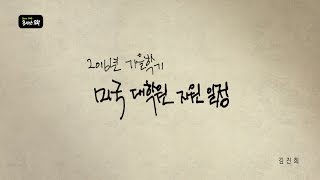 2016년 가을학기
미국 대학원 지원 일정
김진희